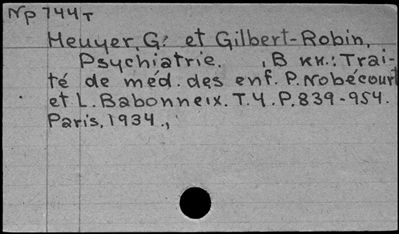 Np 744т
Heuyer, G. et Gilbert-Robin,
Psychiatrie. , В кн.: Trai-
té de méd. des enf. P. Nobécourt
et L. Babonneix. T. 4. P. 839-954.
Paris, 1934.,